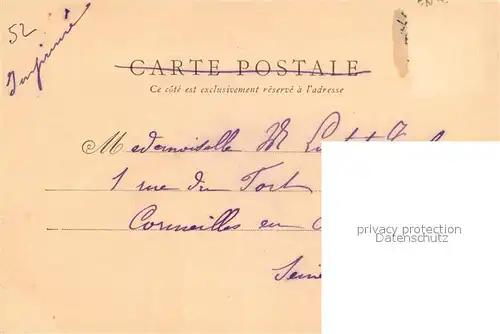 52
Imprimé
CARTE POSTALE
Ce côté est exclusivement réservé à l'adresse
Mademoiselle M
1 rue du Fort
Cormeilles en
privacy protection
Datenschutz
Seine